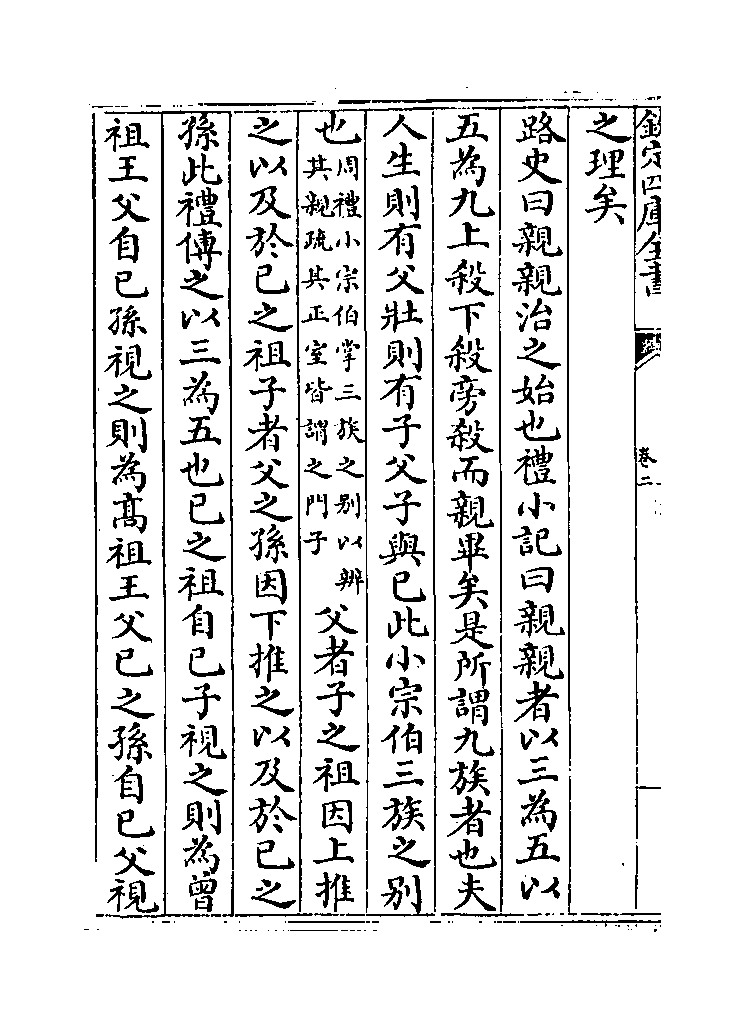 欽定四庫全書
卷二
之理矣
路史曰親親治之始也禮小記曰親親者以三為五以
五為九上殺下殺旁殺而親畢矣是所謂九族者也夫
人生則有父壯則有子父子與已此小宗伯三族之别
也周禮小宗伯掌三族之别以辨其親疏其正室皆謂之門子父者子之祖因上推
之以及於已之祖子者父之孫因下推之以及於已之
孫此禮傳之以三為五也已之祖自已子視之則為曾
祖王父自已孫視之則為髙祖王父已之孫自已父視